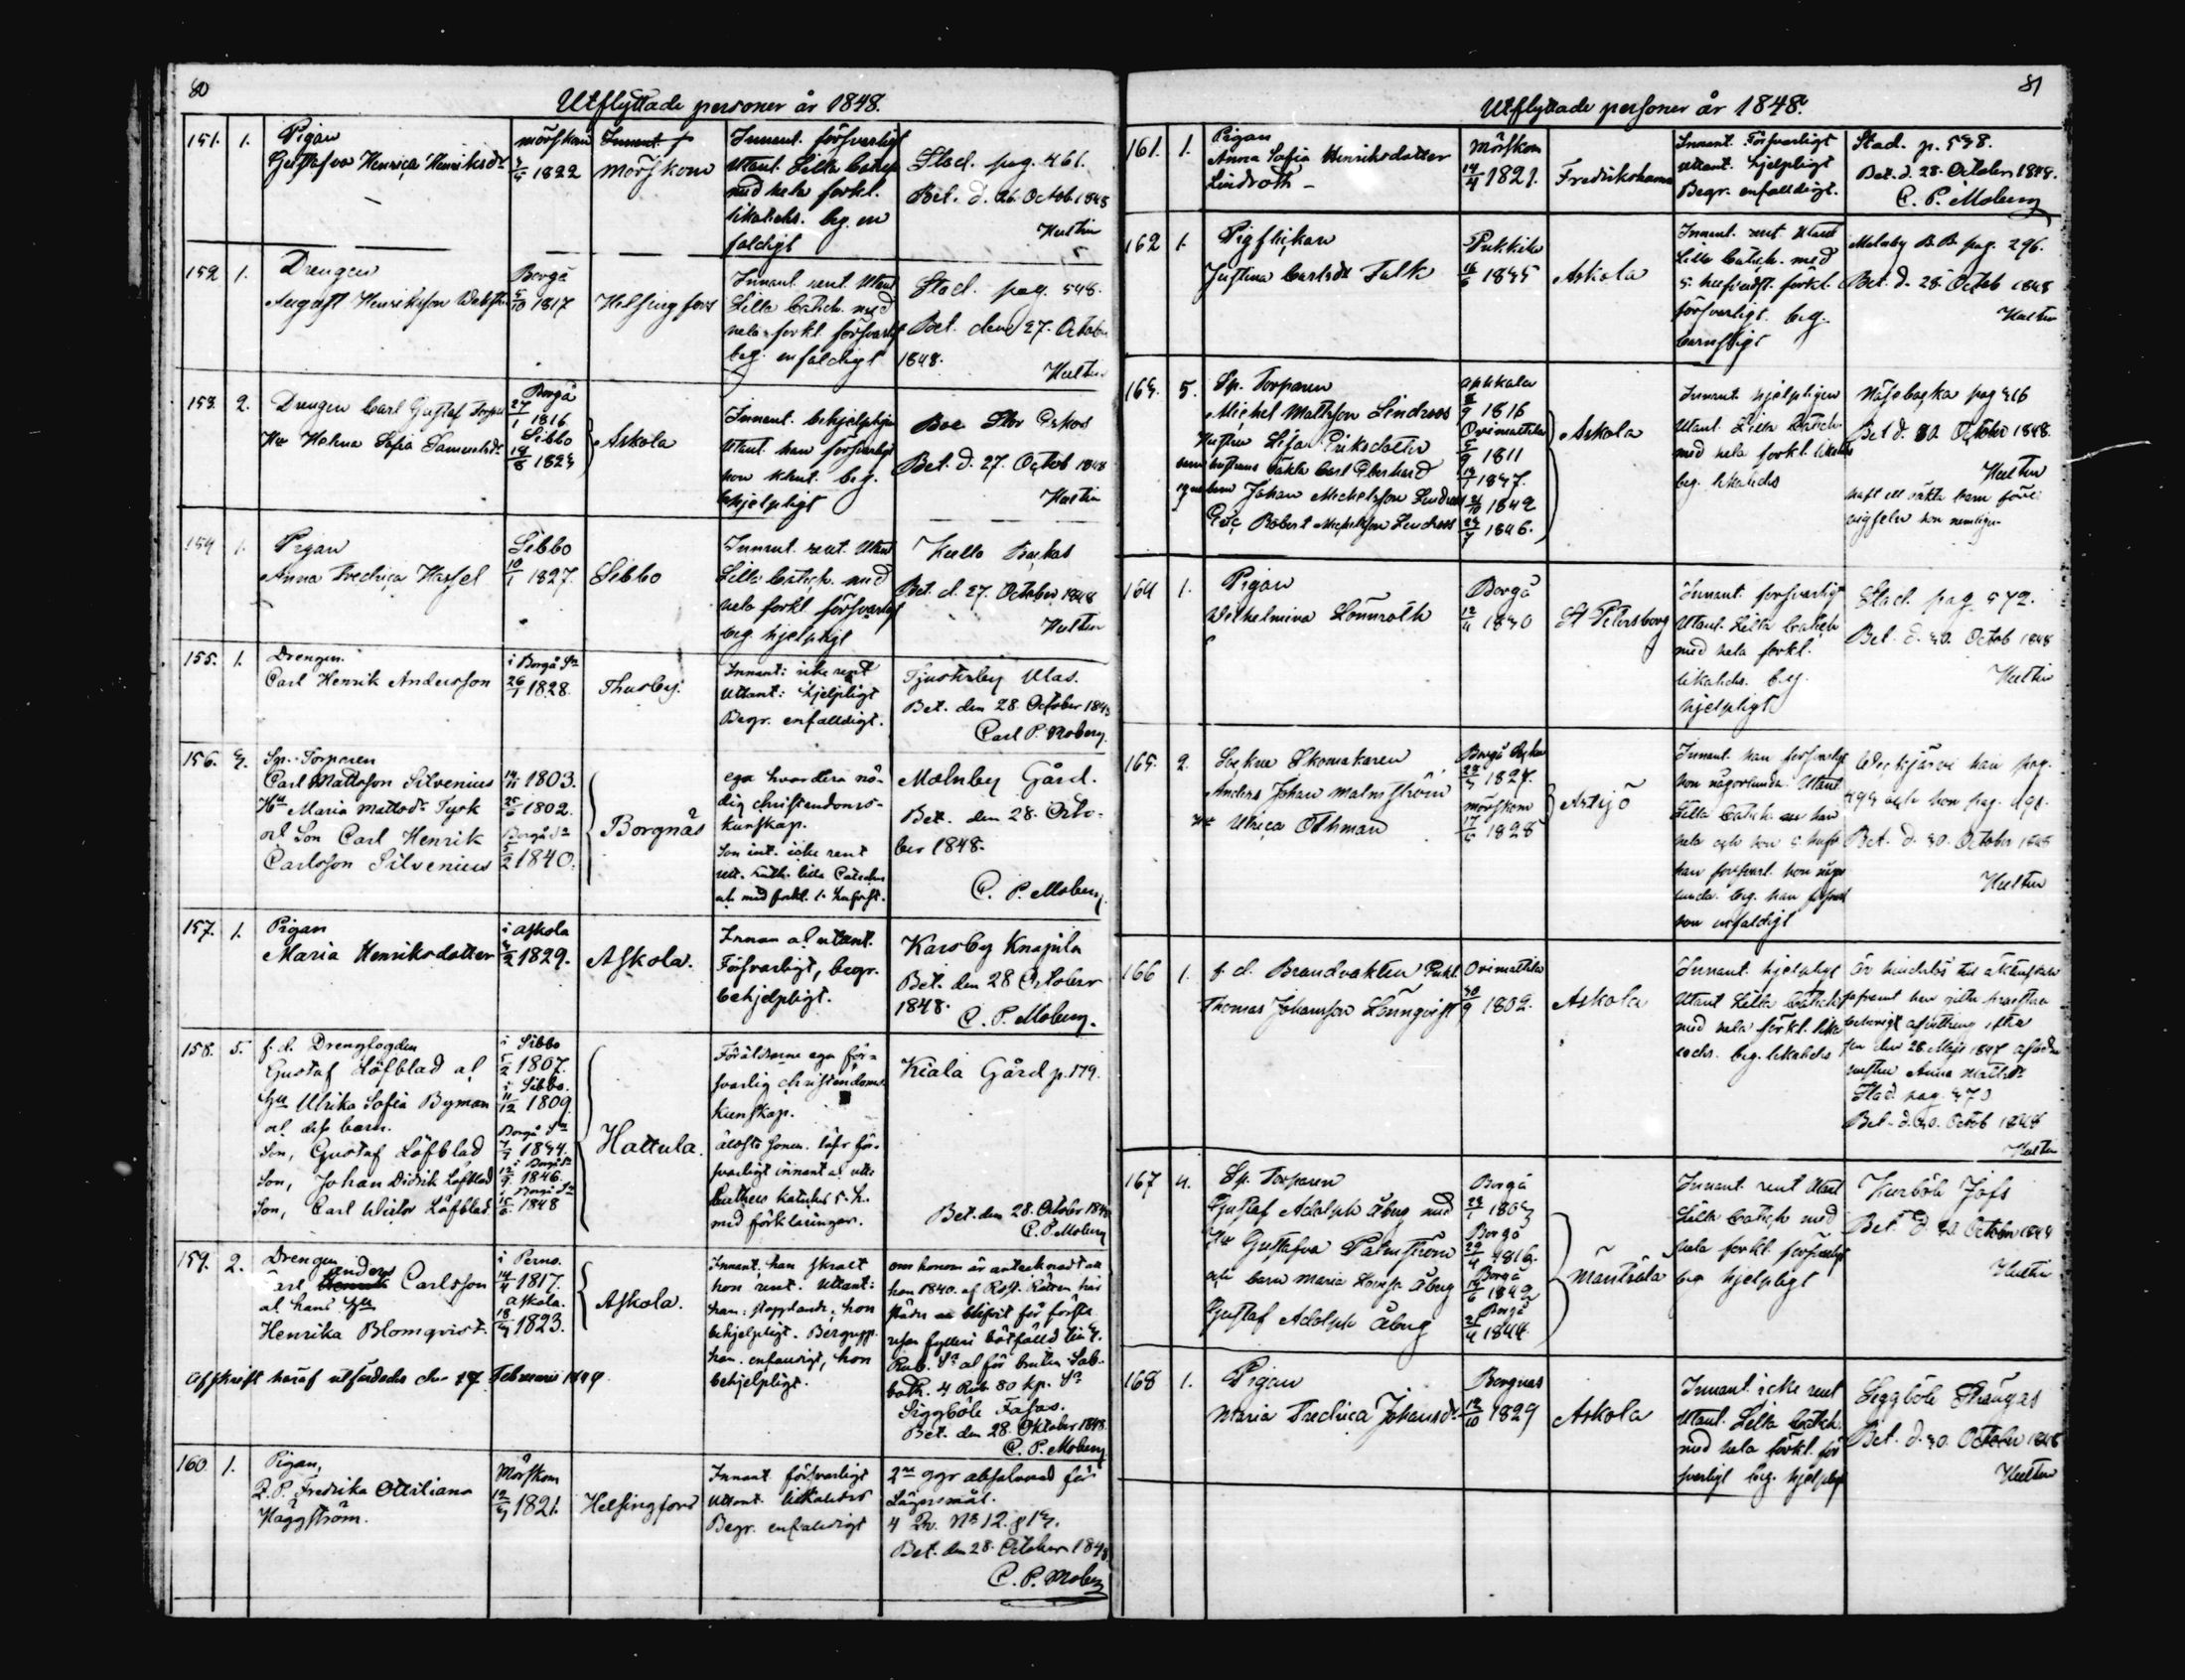 80
Utflyttade personer år 1848.
151. 1. Pigan
Gustafva Henrica Henriksdr
Mörskom
1822
Mörskom
Innant. försvarligt
Utant. Lilla Catech
med hela förkl.
likaledes. beg. en
faldigt
Stad. pag. 461.
Bet. d. 26. Octob. 1848
Hultin
152 1. Drengen
August Henriksson
Borgå
5/10 1817
Helsingfors
Innant. rent. Utant
Lilla Catech. med
hela förkl. försvarligt
beg. enfaldigt
Stad. pag. 548.
Bet. den 27. Octob
1848.
Hultin
153. 2. Drengen Carl Gustaf
Hu Helena Sofia Samuelsdr
Borgå
27/1 1816
Sibbo
18/8 1823
Askola
Innant. behjelpligen
Utant. han försvarligt
hon klent. beg.
behjelpligt
Boe Stor
Bet. d. 27. Octob 1848
Hultin
154 1. Pigan
Anna Fredrica Hassel
Sibbo
10/1 1827.
Sibbo
Innant. rent. Utant
Lilla Catech. med
hela förkl. försvarligt
beg. hjelpligt
Kullo
Bet. d. 27. October 1848
Hultin
155. 1. Drengen
Carl Henrik Andersson
i Borgå Sn
26/1 1828.
Thusby.
Innant: icke rent
Utant: hjelpligt
Begr. enfalldigt.
Tjusterby Ulas.
Bet. den 28 October 1848
Carl P. Moberg.
156. 3. Sp. Torparen
Carl Mattsson Silvenius
Hu Maria Mattsdr Tyrk
och Son Carl Henrik
Carlsson Silvenius
14/11 1803.
25/5 1802.
Borgå Sn
5/2 1840.
Borgnäs
ega hvardera nö-
dig christendoms-
kunskap.
Son int. icke rent
Molnby Gård.
Bet. den 28. Octo-
ber 1848.
C. P. Moberg.
157. 1. Pigan
Maria Henriksdotter
i Askola
1829.
Askola.
Innan ol utant.
Försvarligt, begr.
behjelpligt.
Karsby Knapila
Bet. den 28 October
1848.
C. P. Moberg.
158. 5. f. d. Drengfogden
Gustaf Löfblad ol
Hu Ulrika Sofia Byman
ol dess barn.
Son, Gustaf Löfblad
Son, Johan Didrik Löfblad
Son, Carl Victor Löfblad.
i Sibbo
5/2 1807.
i Sibbo.
11/12 1809.
Borgå Sn
7/7 1834.
i Borgå Sn
12/9 1846.
i Borgå Sn
15/6 1848
Hattula.
Föräldrarne ega för-
svarlig christendoms
kunskap.
äldsta sonen läser för-
svarligt innant ol utt:
Luthers katekes 5. H.
med förklaringar.
Kiala Gård p. 179.
Bet. den 28. October 1848
C. P. Moberg
159. 2. Drengen
Carl Anders Carlsson
ol hans Hu
Henrika Blomqvist.
i Perno.
14/4 1817.
Askola.
1823.
Askola.
Innant. han skralt
hon rent. Uttant:
han: stapplande, hon
behjelpligt. Begrepp.
han. enfaldigt, hon
behjelpligt.
om honom är antecknadt att
han 1840. af Råst. Rätten här
städes blifvit för första
resan fylleri bötfälld till 3.
Rub. Sr ol för bruten Sab-
bath. 4 Rub. 80 kp. Sr
Siggböle Fasas.
Bet. den 28. Oktober 1848.
C. P. Moberg
Afskrift häraf utfärdades den 17 Februari 1849
160. 1. Pigan,
Q. P. Fredrika Ottiliana
Häggström.
Mörskom
12/3 1821.
Helsingfors
Innant försvarligt
Uttant. likaledes
Begr. enfaldigt
2ne ggr absolverad för
Lägersmål.
4 Qv. No 12. p 13.
Bet. den 28. October 1848
C. P. Moberg
81
Utflyttade personer år 1848.
161. 1. Pigan
Anna Sofia Henriksdotter
Lindroth
Mörskom
14/4 1821.
Fredrikshamn
Innant. Försvarligt
Uttant. hjelpligt
Begr. enfalldigt.
Stad. p. 538.
Bet. d. 28. October 1848.
C. P. Moberg
162 1. Pigflickan
Justina Carlsdr Falk
Pukkila
16/6 1835
Askola
Innant. rent Utant
Lilla Catech. med
5. hufvudst. förkl.
försvarligt. beg.
barnsligt
Molnby B. B. pag. 296.
Bet. d. 28. Octob 1848
Hultin
163. 5. Sp. Torparen
Michel Mattsson Lindroos
Hustrun Lisa Eriksdotter
barn hustruns oäkta Carl Eberhard
egne barn Johan Michelsson Lindroos
Eric Robert Michelsson Lindroos
1816
Orimattila
5/9 1811
1837.
1842
24/7 1846.
Askola
Innant. hjelpligen
Utant. Lilla Catech
med hela förkl. likaledes
beg. likaledes
Näsebacka pag 316
Bet d. 30. October 1848.
Hultin
haft ett oäkta barn före
vigseln
164 1. Pigan
Wilhelmina Lönnroth
Borgå
1830
St Petersborg
Innant. försvarligt
Utant. Lilla Catech
med hela förkl.
likaledes. beg.
hjelpligt
Stad. pag. 572.
Bet. d. 30. Octob 1848
Hultin
165. 2. Sockne Skomakaren
Anders Johan Malmström
Hu Ulrica Othman
Borgå Sockn
1827.
Mörskom
17/6 1828
Artsjö
Innant. han försvarligt
hon någorlunda. Utant
Lilla Catech. han
hela och hon 5. hufv
han försvarl. hon någor
lunda. beg. han försvarl
hon enfaldigt
Weckjärvi han pag.
493 och hon pag. 491.
Bet. d. 30. October 1848
Hultin
166 1. f. d. Brandvakten
Thomas Johansson Lönnqvist
Orimattila
30/9 1802.
Askola
Innant. hjelpligt
Utant Lilla Catech
med hela förkl. lika
ledes. beg. likaledes
är hinderlös till äktenskap
den 28 Maji 1847 aflidna
hustrun Anna Mattsdr
Stad pag. 370
Bet. d. 30. Octob 1848
Hultin
167 4. Sp. Torparen
Gustaf Adolph Åberg med
Hu Gustafva Palmström
och barn Maria Åberg
Gustaf Adolph Åberg
Borgå
23/1 1803
Borgå
29/4 1816.
Borgå
1842
Borgå
21/4 1844.
Mäntsälä
Innant. rent Utant
Lilla Catech med
hela förkl. försvarligt
beg hjelpligt
Kurböle Jofs
Bet. d. 30 October 1848
Hultin
168 1. Pigan
Maria Fredrica Johansdr
Borgnäs
12/10 1829
Askola
Innant. icke rent
Utant. Lilla Catech.
med hela förkl. för
svarligt beg. hjelpligt
Seggböle Strångas
Bet. d. 30. October 1848
Hultin